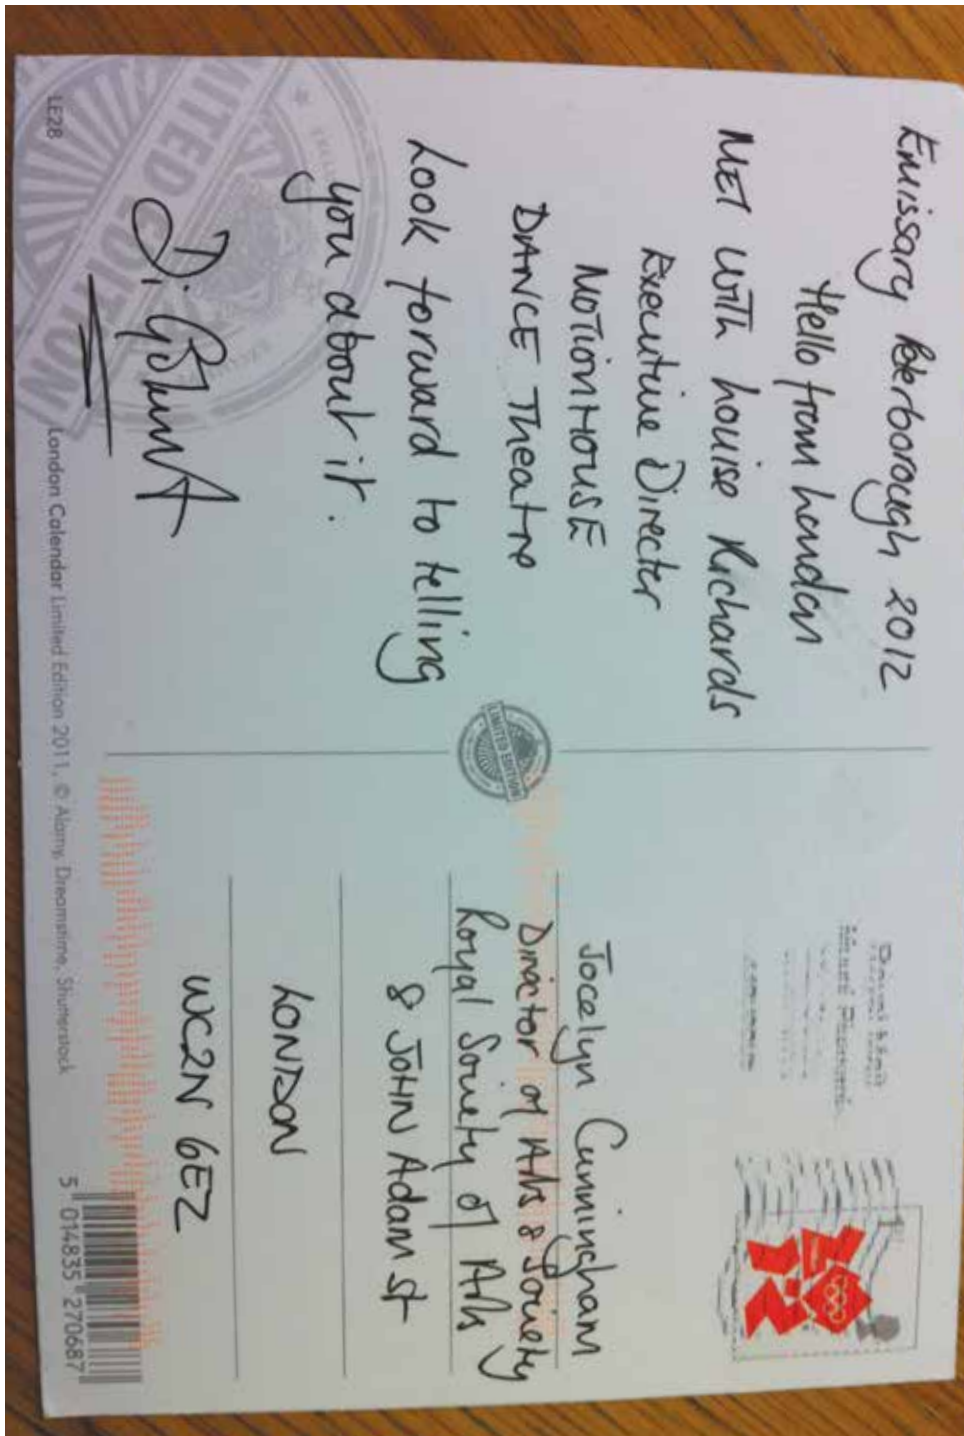 Emissary Peterborough 2012
Hello from London
MET with Louise Richards
Executive Director
MOTIONHOUSE
DANCE Theatre
Look forward to telling
you about it.
Di
Jocelyn Cunningham
Director of Arts & Society
Royal Society of Arts
8 JOHN Adam St
LONDON
WC2N 6EZ
LIMITED EDITION
LIMITED EDITION
LE28
London Calendar Limited Edition 2011, © Alamy, Dreamstime, Shutterstock
5 014835 270687